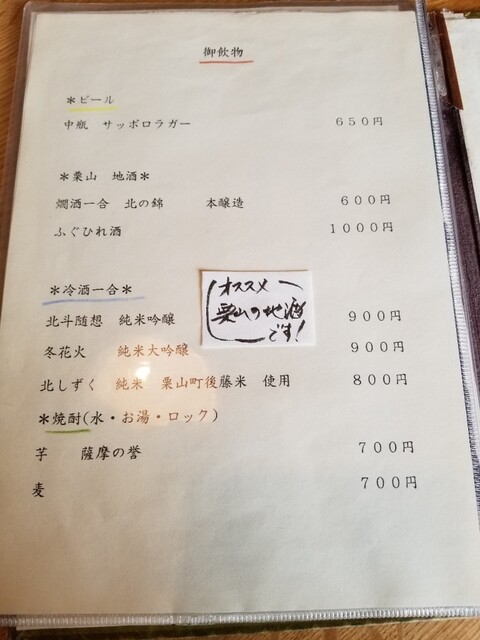 御飲物
＊ビール
中瓶　サッポロラガー　６５０円
＊栗山　地酒＊
燗酒一合　北の錦　本醸造　６００円
ふぐひれ酒　１０００円
＊冷酒一合＊
オススメ
栗山の地酒
です！
北斗随想　純米吟醸　９００円
冬花火　純米大吟醸　９００円
北しずく　純米　栗山町後藤米　使用　８００円
＊焼酎(水・お湯・ロック)
芋　薩摩の誉　７００円
麦　７００円